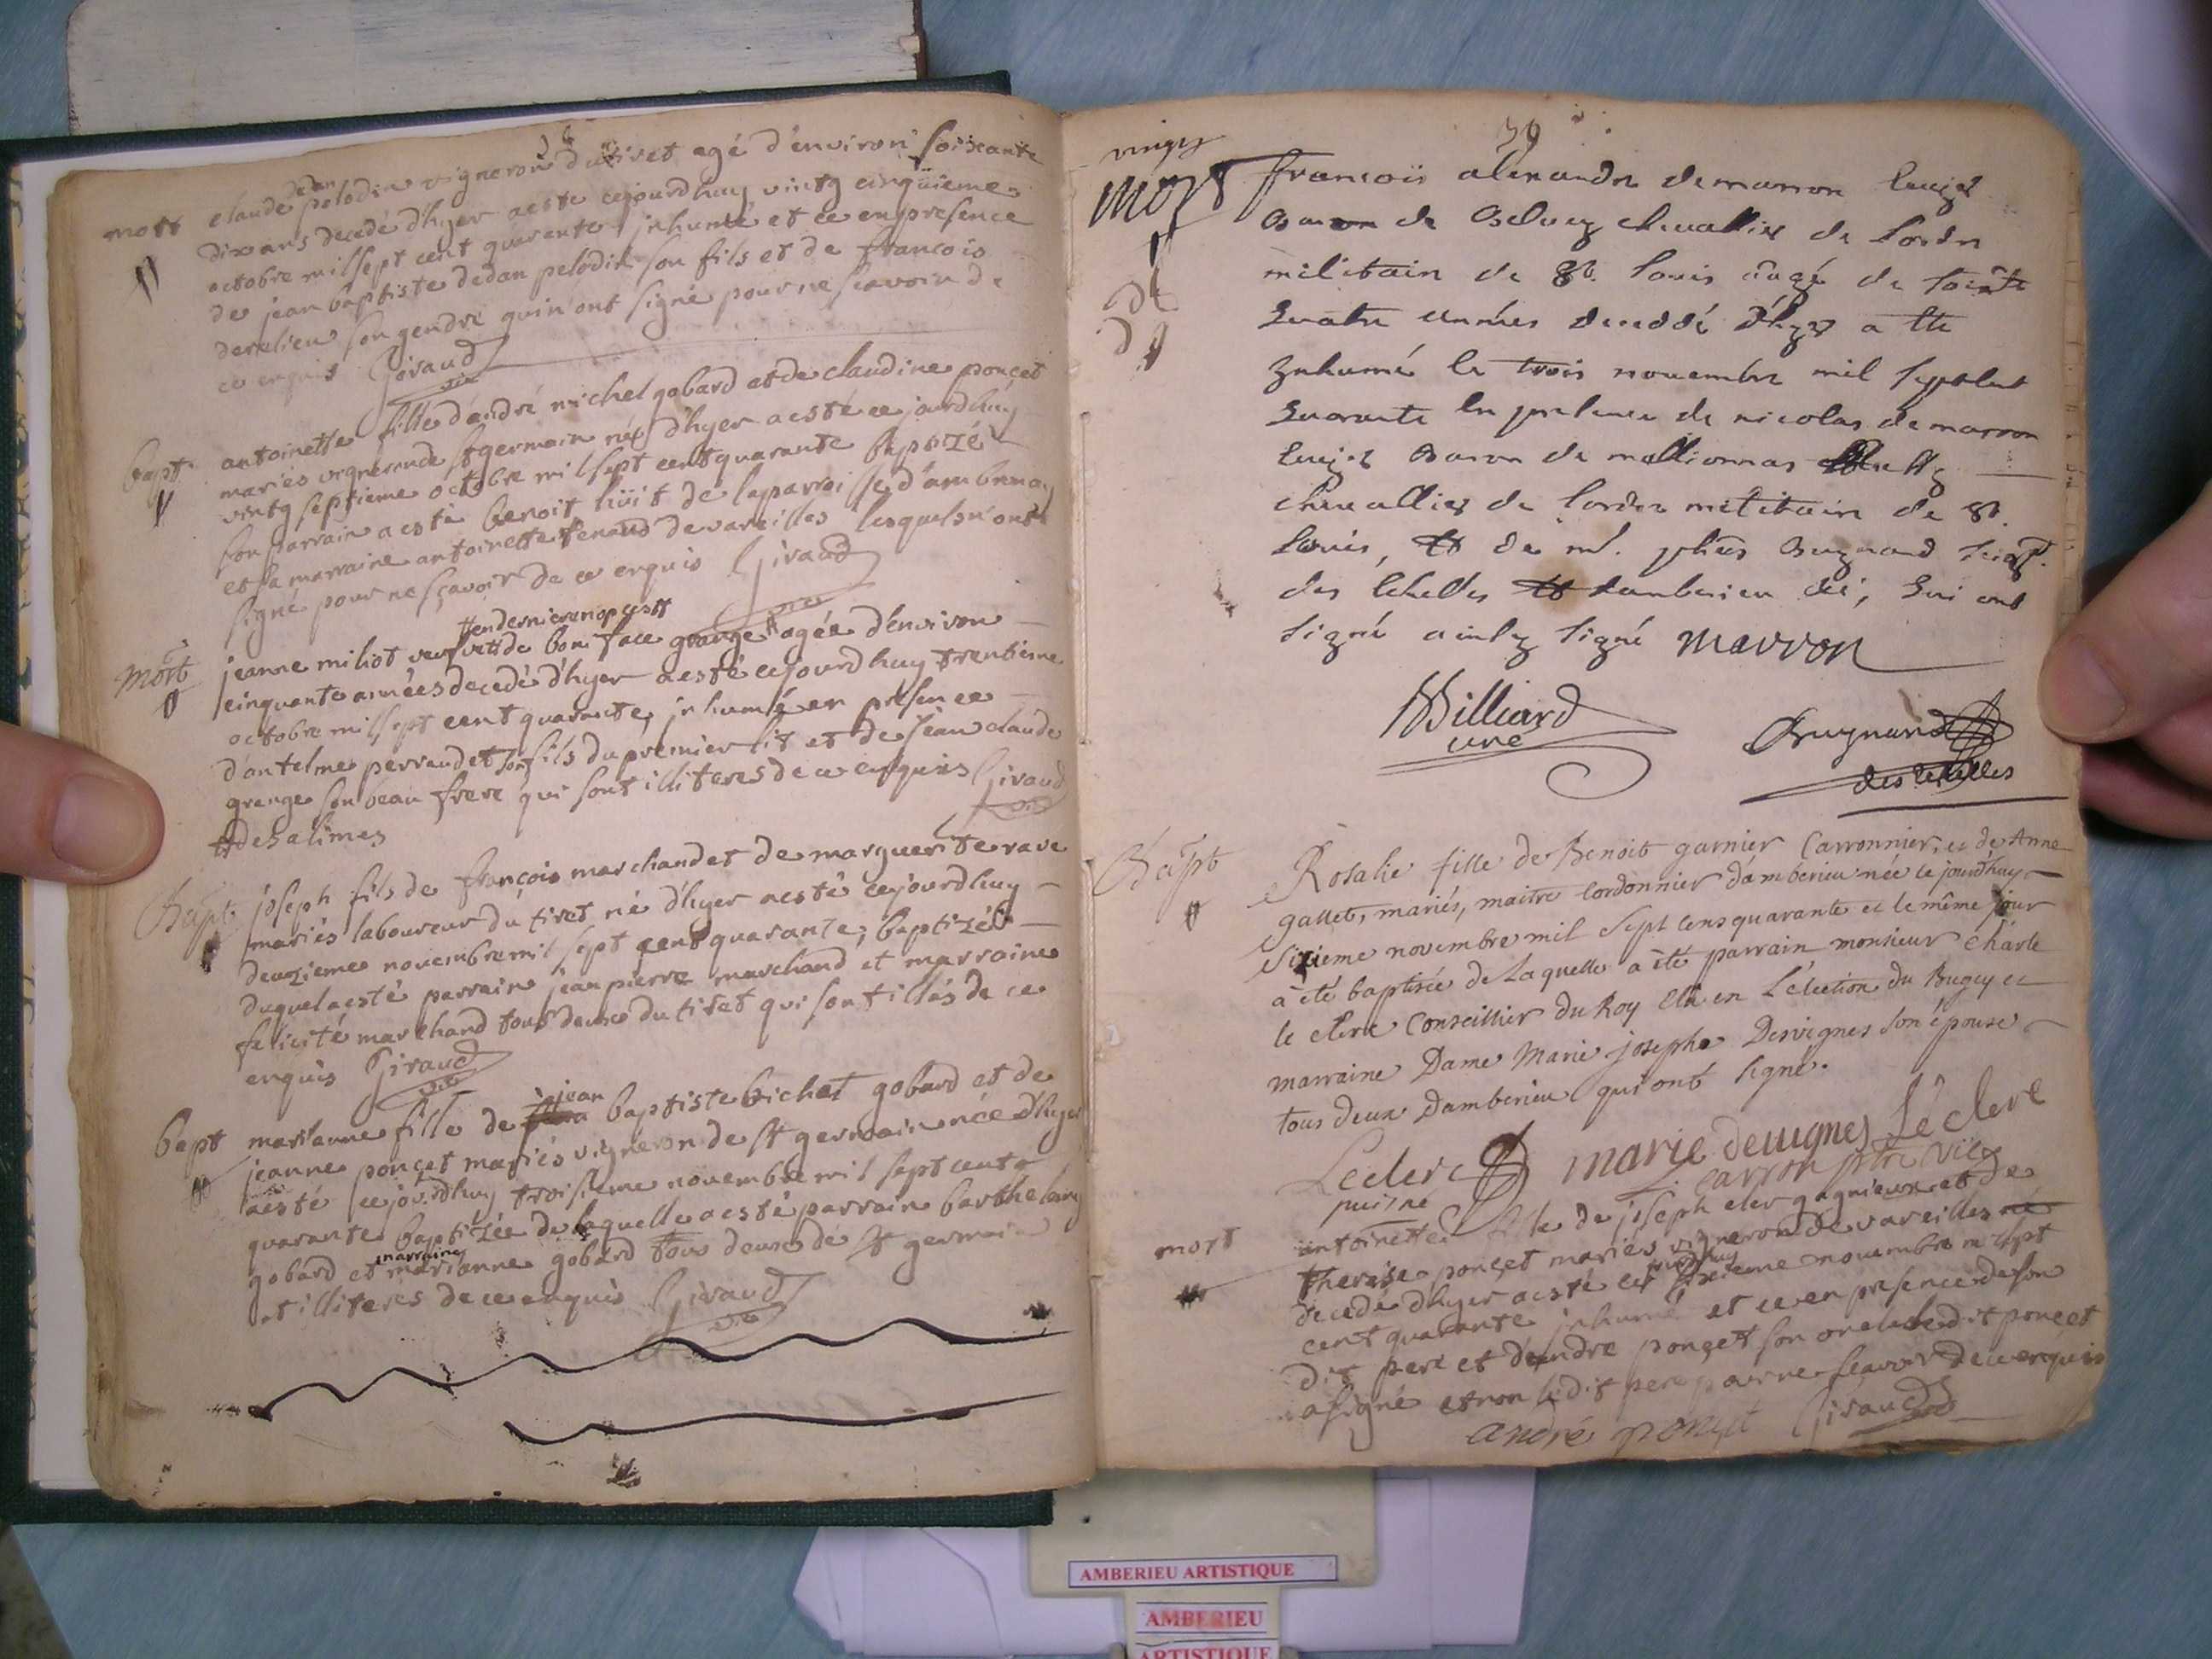 mort
claude dedan pelodin vigneron du tiret agé d'environ soixante
dix ans decedé d'hyer aesté cejourdhuy vintg cinqüieme
octobre mil sept cent quarante jnhumé et ce en presence
de jean baptiste dedan pelodin son fils et de francois
son gendre qui n'ont signé pour ne scavoir de
ce enquis Giraud
vic
bapt
antoinette fille d'andré michel gobard et de claudine ponçet
mariés vigneron de st germain née d'hyer aesté ce jourdhuy
vintg septieme octobre mil sept cent quarante baptizé
son parrain aesté benoit hüit de la parroisse d'ambronay
et sa marraine antoinette tenand de vareilles lesquels n'ont
signé pour ne sçavoir de ce enquis Giraud
vic
mort
en dernieres nopces
jeanne miliot veufve de boniface grange agée d'environ
cinquante années decedé d'hyer aesté cejourdhuy trentieme
octobre mil sept cent quarante, jnhumé en présence
d'antelme perraudet son fils du premier lit et de jean claude
grange son beau frere qui sont illiteres de ce enquis Giraud
vic
des alimes
Bapt
joseph fils de françois marchand et de marguerite rave
mariés laboureur du tiret né d'hyer aesté cejourdhuy
deuxieme novembre mil sept cent quarante, baptizé
duquel aesté parrain jean pierre marchand et marraine
felicité marchand tous deux du tiret qui sont illés de ce
enquis Giraud
vic
bapt
marianne fille de jean baptiste bichet gobard et de
jeanne ponçet mariés vigneron de st germain née d'hyer
aesté cejourdhuy troisieme novembre mil sept cent
quarante baptizée de laquelle aesté parrain barthelemy
gobard et marraine marianne gobard tous deux de st germain
et illiteres de ce enquis Giraud
vic
39
mort
francois alexandre demarron
baron de Belvey chevallier de lordre
militaire de st. louis aagé de
quatre années decedé d'hyer a ete
inhumé le trois novembre mil sept cent
quarante en presence de nicolas demarron
baron de meillionnas
chevallier de lordre militaire de st.
louis, et de mr. Bugnand
des échelles dambérieu, qui ont
signé ainsy signé marron
Billiard
curé
Bugnand
des echelles
Bapt
Rosalie fille de Benoit garnier Carronnier, et de Anne
gallet, mariés, maitre cordonnier d'ambérieu née le jourdhuy
Sixieme novembre mil sept cens quarante et le même jour
à été baptisée de Laquelle a été parrain monsieur charle
le clerc Conseillier du Roy Elu en L'élection du Bugey et
marraine Dame Marie josephe Desvignes son épouse
tous deux Dambérieu qui ont signé.
Leclerc marie devignes Léclerc
puisné carron ptre vic
mort
antoinette fille de joseph cler gagnieux et de
therese ponçet mariés vigneron de vareilles
decedé d'hyer aesté ce jourdhuy sixieme novembre m sept
cent quarante jnhumé et ce en presence de son
dit pere et d'andre ponçet son oncle ledit ponçet
a signé et non ledit pere pour ne scavoir de ce enquis
andré ponçet Giraud
AMBERIEU ARTISTIQUE
AMBERIEU
ARTISTIQUE